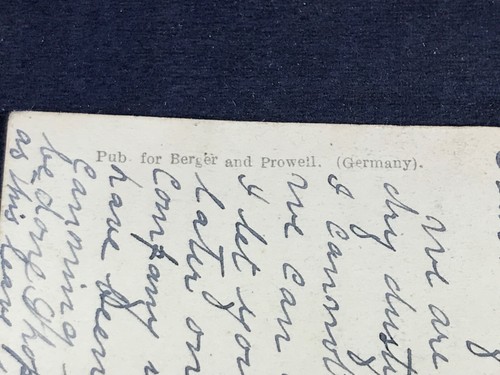 Pub. for Berger and Prowell. (Germany).
We are
dry dusty
I cannot
We can
I let you
later on
Company
have been
Canning
be done
as this leave